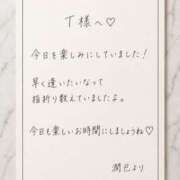 T様へ♡
今日を楽しみにしていました！
早く逢いたいなって
指折り数えていましたよ。
今日も楽しいお時間にしましょうね♡
潤已より